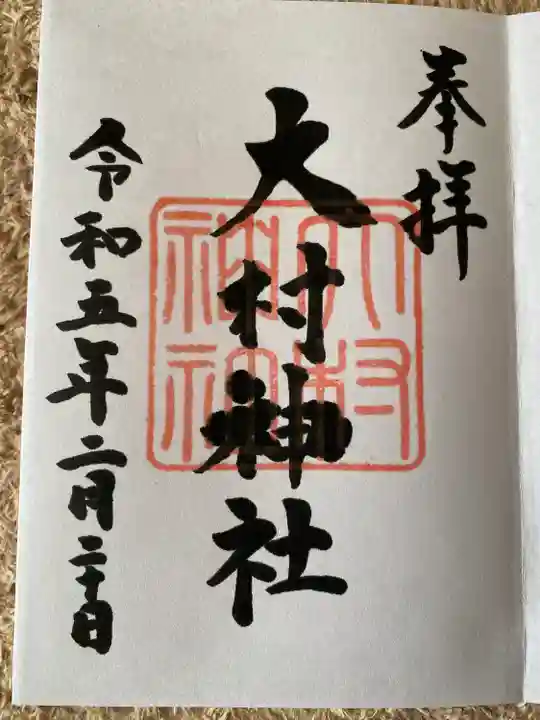 奉拝
大村神社
大村
神社
令和五年二月二十日